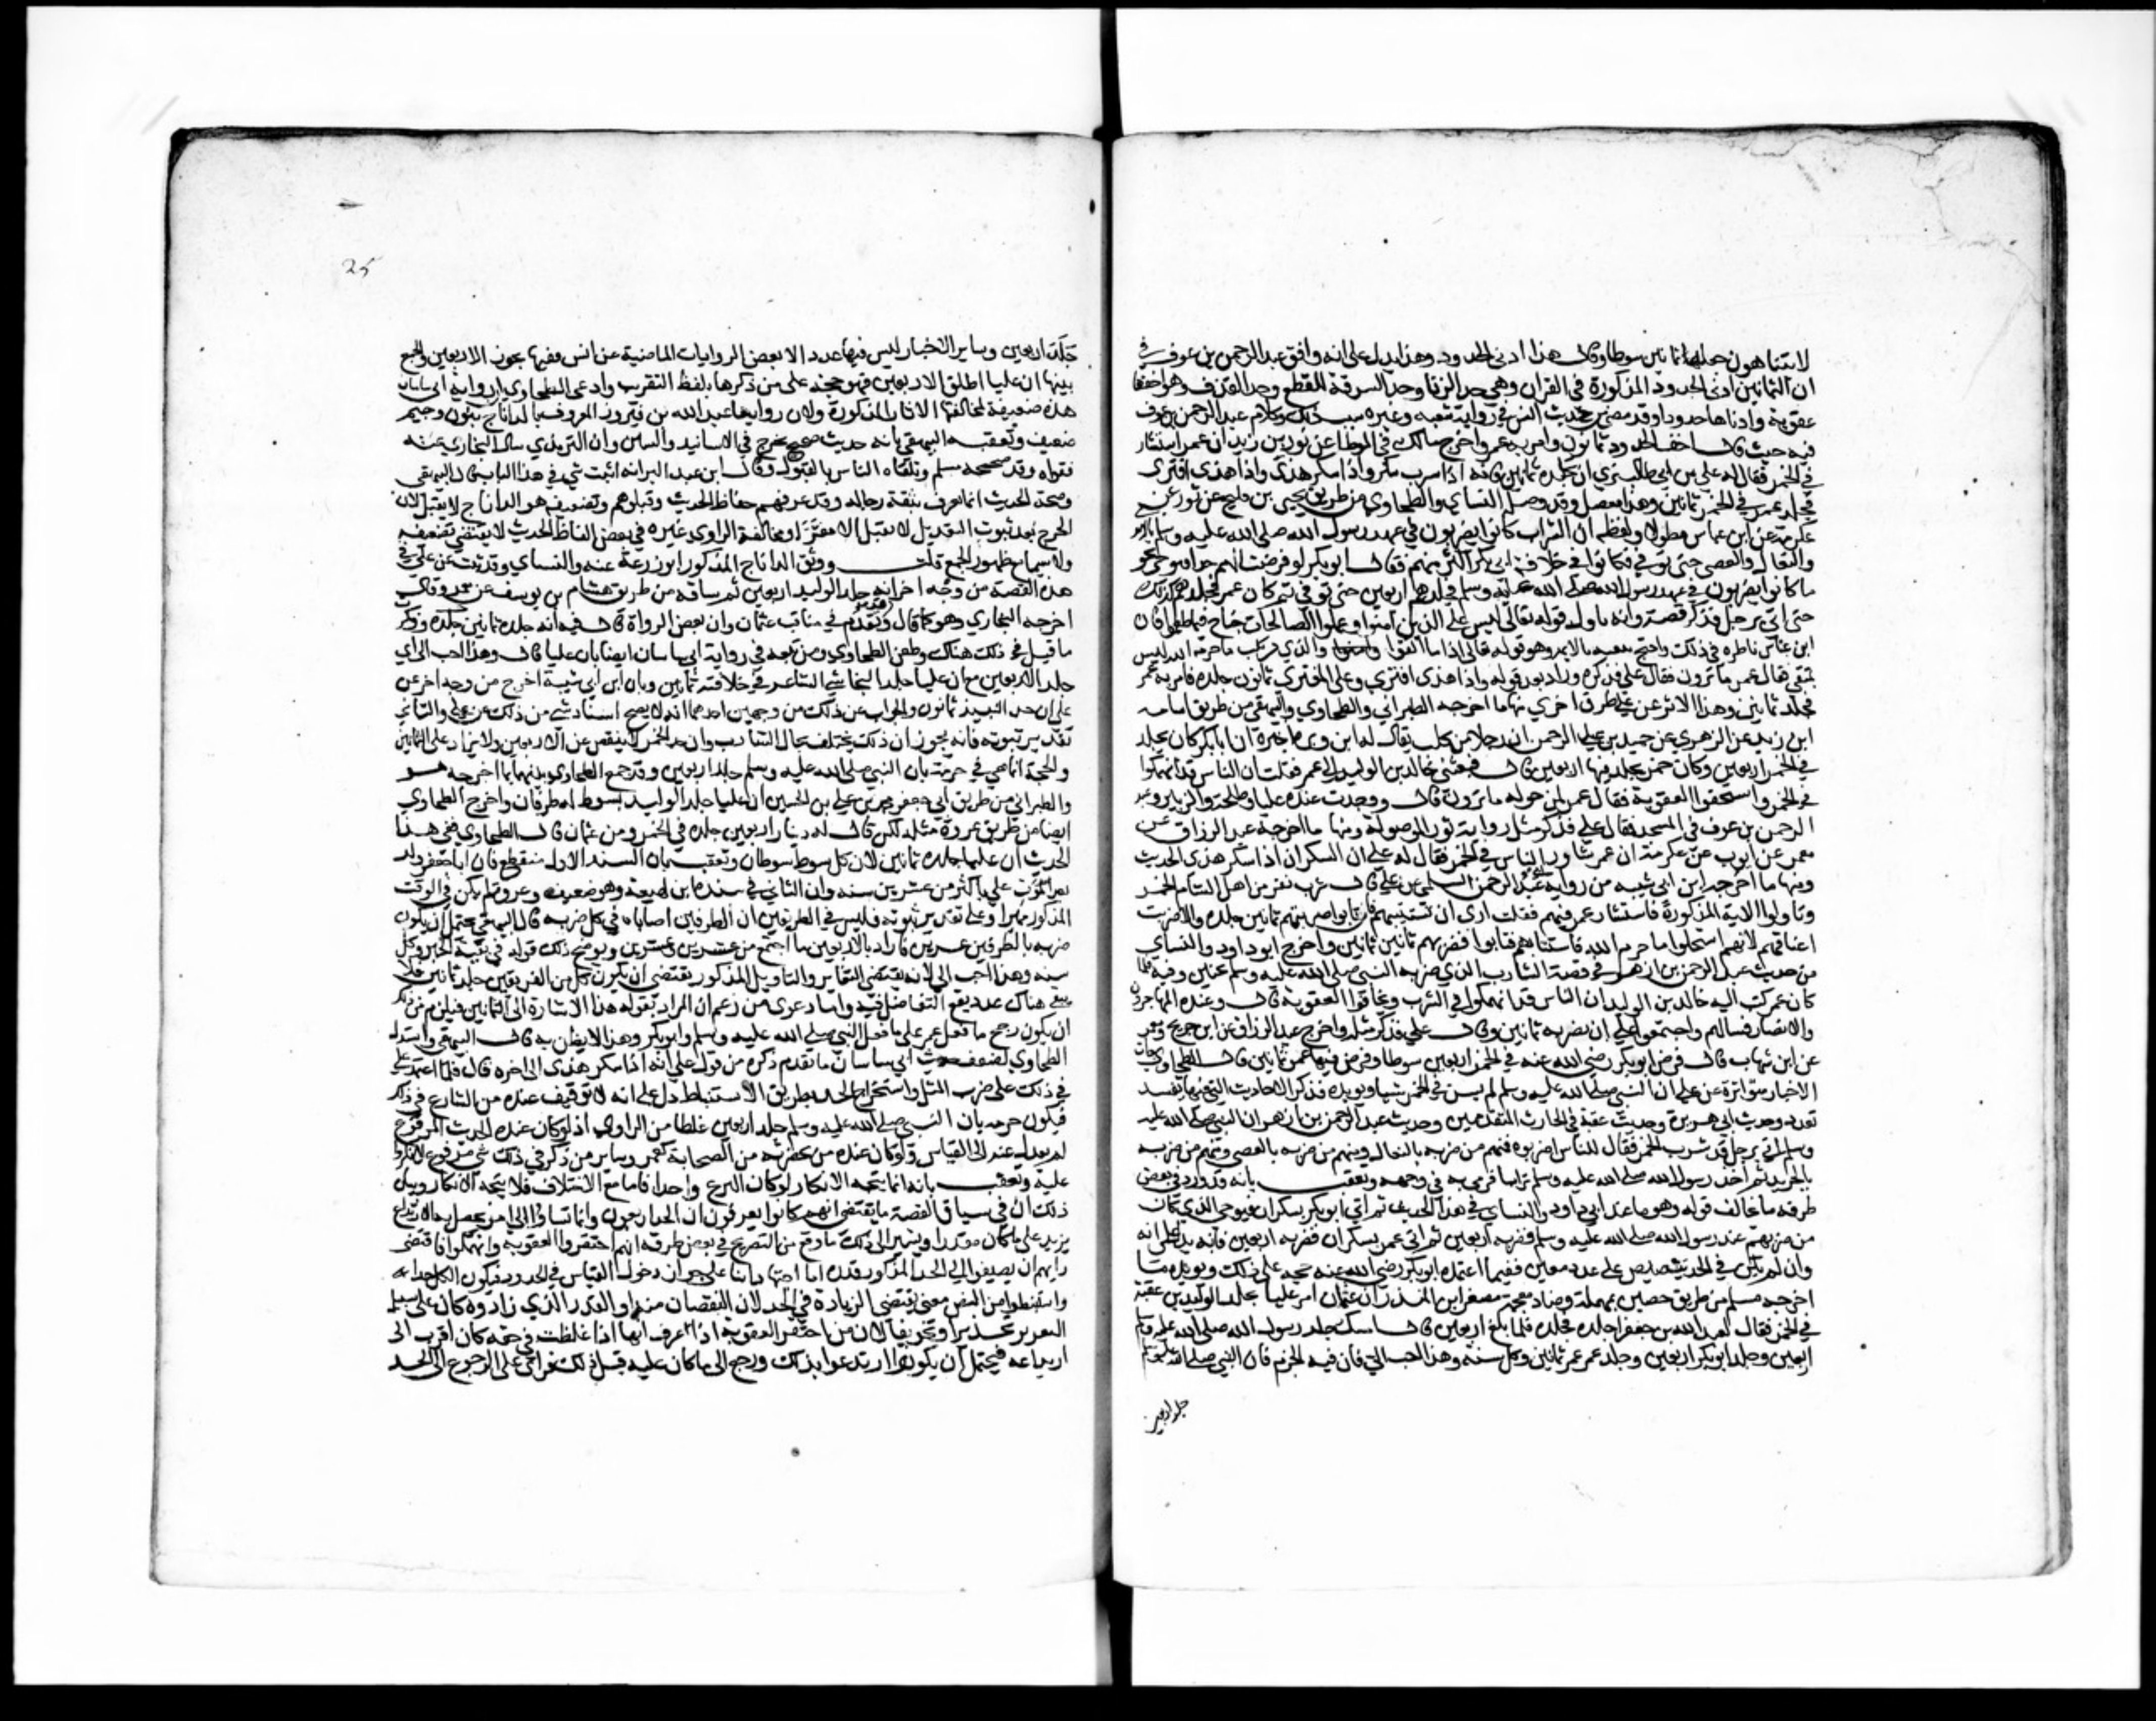 لا يتناهون جعلها ثمانين سوطا وقال هذا ادنى الحدود وهذا يدل على انه وافق عبد الرحمن بن عوف في
ان الثمانين ادنى الحدود المذكورة في القران وهي حد الزنا وحد السرقة للقطع وحد القذف وهو اخفها
عقوبة وادناها حدودا وقد مضى من حديث انس في رواية شعبه وغيره سبب ذلك وكلام عبد الرحمن بن عوف
فيه حيث قال اخف الحدود ثمانون وامر به عمر واخرج مالك في الموطا عن ثور بن زيد ان عمر استشار
في الخمر فقال له علي بن ابي طالب نري ان تجلده ثمانين فانه اذا شرب سكر واذا سكر هذي واذا هذي افتري
فجلد عمر في الخمر ثمانين وهذا معضل وقد وصله النساي والطحاوي من طريق يحيى بن فليح عن ثور عن
عكرمة عن ابن عباس مطولا ولفظه ان الشراب كانوا يضربون في عهد رسول الله صلى الله عليه وسلم بالايدي
والنعال والعصي حتى توفي فكانوا في خلافة ابي بكر اكثر منهم فقال ابو بكر لو فرضنا لهم حدا فتوخى نحو
ما كانوا يضربون في عهد رسول الله صلى الله عليه وسلم فجلدهم اربعين حتى توفي ثم كان عمر فجلدهم كذلك
حتى اتي برجل فذكر قصة وانه تاول قوله تعالى ليس على الذين آمنوا وعملوا الصالحات جناح فيما طعموا فان
ابن عباس ناظره في ذلك واحتج ببقية الاية وهو قوله تعالى اذا ما اتقوا والذي يرتكب ما حرمه الله ليس
بتقي فقال عمر ما ترون فقال علي فذكره وزاد بعد قوله واذا هذي افتري وعلى المفتري ثمانون جلدة فامر به عمر
فجلد ثمانين وهذا الاثر عن علي طرق اخري منها ما اخرجه الطبراني والطحاوي والبيهقي من طريق اسامه
ابن زيد عن الزهري عن حميد بن عبد الرحمن ان رجلا من كلب يقال له ابن وبرة اخبره ان ابا بكر كان يجلد
في الخمر اربعين وكان عمر يجلد فيها اربعين قال فبعثني خالد بن الوليد الى عمر فقلت ان الناس قد انهمكوا
في الخمر واستخفوا العقوبة فقال عمر لمن حوله ما ترون قال ووجدت عنده عليا وطلحة والزبير وعبد
الرحمن بن عوف في المسجد فقال علي فذكر مثل رواية ثور الموصولة ومنها ما اخرجه عبد الرزاق عن
معمر عن ايوب عن عكرمة ان عمر شاور الناس في الخمر فقال له علي ان السكران اذا سكر هذي الحديث
ومنها ما اخرجه ابن ابي شيبه من رواية ابي عبد الرحمن السلمي عن علي قال شرب نفر من اهل الشام الخمر
وتاولوا الاية المذكورة فاستشار عمر فيهم فقلت اري ان تستتيبهم فان تابوا ضربتهم ثمانين جلده والا ضربت
اعناقهم لانهم استحلوا ما حرم الله فاستتابهم فتابوا فضربهم ثمانين ثمانين واخرج ابو داود والنساي
من حديث عبد الرحمن بن ازهر في قصة الشارب الذي ضربه النبي صلى الله عليه وسلم بحنين وفيه فلما
كان عمر كتب اليه خالد بن الوليد ان الناس قد انهمكوا في الشرب وتحاقروا العقوبة قال وعنده المهاجرون
والانصار فسالهم واجتمعوا على ان يضربه ثمانين وقال علي فذكر مثله واخرج عبد الرزاق عن ابن جريج ومعمر
عن ابن شهاب قال فرض ابو بكر رضي الله عنه في الخمر اربعين سوطا وفرض فيها عمر ثمانين قال الطحاوي جات
الاخبار متواترة عن علي ان النبي صلى الله عليه وسلم لم يسن في الخمر شيا ويويده فذكر الاحاديث التي فيها تقييد
بعدد وحديث ابي هريرة وحديث عقبة بن الحارث المتقدمين وحديث عبد الرحمن بن ازهر ان النبي صلى الله عليه
وسلم اتي برجل قد شرب الخمر فقال للناس اضربوه فمنهم من ضربه بالنعال ومنهم من ضربه بالعصي ومنهم من ضربه
بالجريد ثم اخذ رسول الله صلى الله عليه وسلم ترابا فرمى به في وجهه وتعقب بانه قد ورد في بعض
طرقه ما يخالف قوله وهو ما عند ابي داود والنساي في هذا الحديث ثم اتي ابو بكر بسكران فتوخى الذي كان
من ضربهم عند رسول الله صلى الله عليه وسلم فضربه اربعين ثم اتي عمر بسكران فضربه اربعين فانه يدل على انه
وان لم يكن في الحديث تنصيص على عدد معين ففيما اعتمده ابو بكر رضي الله عنه حجة على ذلك ويويده ما
اخرجه مسلم من طريق حضين بمهملة وضاد معجمة مصغر ابن المنذر ان عثمان امر عليا بجلد الوليد بن عقبة
في الخمر فقال لعبد الله بن جعفر اجلده فجلده فلما بلغ اربعين قال امسك جلد رسول الله صلى الله عليه وسلم
اربعين وجلد ابو بكر اربعين وجلد عمر ثمانين وكل سنة وهذا احب الي فان فيه الجزم فان النبي صلى الله عليه وسلم
جلد اربعين
25
جلد اربعين وساير الاخبار ليس فيها عدد الا بعض الروايات الماضية عن انس ففيها نحو الاربعين والجمع
بينها ان عليا اطلق الاربعين فهو حجة على من ذكرها بلفظ التقريب وادعى الطحاوي ان رواية ابي ساسان
هذه ضعيفة لمخالفتها الاثار المذكورة ولان راويها عبد الله بن فيروز المعروف بالداناج بنون وجيم
ضعيف وتعقبه البيهقي بانه حديث صحيح مخرج في المسانيد والسنن وان الترمذي سال البخاري عنه
فقواه وقد صححه مسلم وتلقاه الناس بالقبول وقال ابن عبد البر انه اثبت شي في هذا الباب قال البيهقي
وصحة الحديث انما تعرف بثقة رجاله وقد عرفهم حفاظ الحديث وقبلوهم وتضعيفه هو الداناج لا يقبل لان
الجرح بعد ثبوت التعديل لا يقبل الا مفسرا ومخالفة الراوي غيره في بعض الفاظ الحديث لا يقتضي تضعيفه
ولا سيما مع ظهور الجمع قلت ووثق الداناج المذكور ابو زرعة والنساي وقد ثبت عن علي في
هذه القصة من وجه اخر انه جلد الوليد اربعين ثم ساقه من طريق هشام بن يوسف عن معمر وقال
اخرجه البخاري وهو كما قال وقد تقدم في مناقب عثمان وان بعض الرواة قال فيه انه جلده ثمانين جلدة وذكرت
ما قيل في ذلك هناك وطعن الطحاوي ومن تبعه في رواية ابي ساسان ايضا بان عليا قال وهذا احب الى اي
جلد الاربعين مع ان عليا جلد النجاشي الشاعر في خلافته ثمانين وبان ابن ابي شيبة اخرج من وجه اخر عن
علي ان حد النبيذ ثمانون والجواب عن ذلك من وجهين احدهما انه لا يصح اسناد شي من ذلك عن علي والثاني
تقدير ثبوته فانه يجوز ان ذلك يختلف بحال الشارب وان حد الخمر لا ينقص عن الاربعين ولا يزاد على الثمانين
والحجة انما هي في جزمه بان النبي صلى الله عليه وسلم جلد اربعين وقد جمع الطحاوي بينهما بما اخرجه هو
والطبراني من طريق ابي جعفر محمد بن علي بن الحسين ان عليا جلد الوليد بسوط له طرفان واخرج الطحاوي
ايضا من طريق عروة مثله لكن قال له ذنبان اربعين جلده في الخمر زمن عثمان قال الطحاوي ففي هذا
الحديث ان عليا جلده ثمانين لان كل سوط سوطان وتعقب بان السند الاول منقطع فان ابا جعفر ولد
بعد موت علي باكثر من عشرين سنه وان الثاني في سنده ابن لهيعة وهو ضعيف وعروة لم يكن في الوقت
المذكور مميزا وعلى تقدير ثبوته فليس في الطريقين ان الطرفين اصاباه في كل ضربه قال البيهقي يحتمل ان يكون
ضربه بالطرفين عشرين فاراد بالاربعين ما اجتمع من عشرين وعشرين ويوضح ذلك قوله في بقية الخبر وكل
سنه وهذا احب الي لانه يقتضي التغاير والتاويل المذكور يقتضي ان يكون كل من الفريقين جلد ثمانين فلا
يبقى هناك عدد يقع التفاضل فيه واما دعوى من زعم ان المراد بقوله هذا الاشارة الى الثمانين فيلزم من ذلك
ان يكون رجح ما فعل عمر على ما فعل النبي صلى الله عليه وسلم وابو بكر وهذا لا يظن به قاله البيهقي واستدل
الطحاوي لضعف حديث ابي ساسان ما تقدم ذكره من قول علي انه اذا سكر هذي الى اخره قال فلما اعتمد علي
في ذلك على ضرب المثل واستخراج الحد بطريق الاستنباط دل على انه لا توقيف عنده من الشارع في ذلك
فيكون جزمه بان النبي صلى الله عليه وسلم جلد اربعين غلطا من الراوي اذ لو كان عنده الحديث المرفوع
لم يعدل عنه الى القياس ولو كان عنده من بحضرته من الصحابة كعمر وساير من ذكر في ذلك شي مرفوع لانكروا
عليه وتعقب بانه انما يتجه الانكار لو كان النزع واحدا فاما مع الاختلاف فلا يتجه الانكار وبيان
ذلك ان في سياق القصة ما يقتضي انهم كانوا يعرفون ان الحد اربعون وانما تشاوروا في امر يحصل به الارتداع
يزيد على ما كان مقدرا ويشير الى ذلك ما وقع من التصريح في بعض طرقه انهم احتقروا العقوبة وانهمكوا فاقتضى
رايهم ان يضيفوا الى الحد المذكور قدره اما اجتهادا بناء على جواز دخول القياس في الحدود فيكون الكل حدا او
واستنبطوا من النص معنى يقتضي الزيادة في الحد لا النقصان منه او القدر الذي زادوه كان على سبيل
التعزير تحذيرا وتخويفا لان من احتقر العقوبة اذا عرف انها اذا غلظت في حقه كان اقرب الى
ارتداعه فيحتمل ان يكونوا ارتدعوا بذلك ورجع الى ما كان عليه قبل ذلك فراى علي الرجوع الى الحد